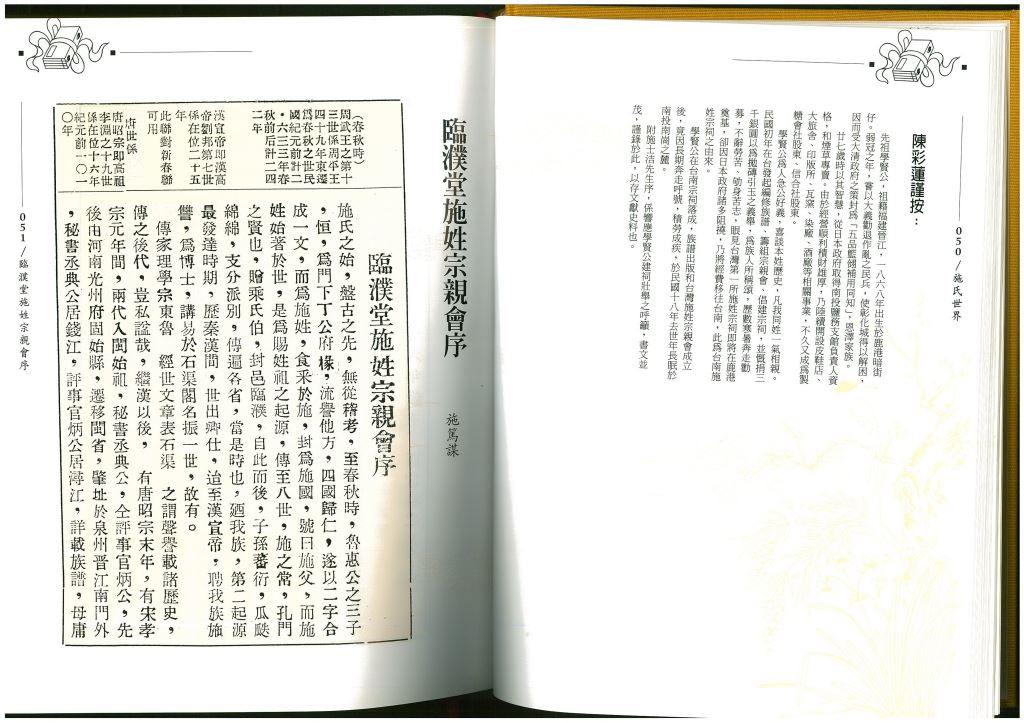 050/施氏世界
陳彩蓮謹按：
先祖學賢公，祖籍福建晉江，一八六八年出生於鹿港暗街
仔。弱冠之年，嘗以大義勸退作亂之民兵，使彰化城得以解困，
因而受大清政府之策封為「五品藍翎補用同知」，恩澤家族。
廿七歲時以其智慧，從日本政府取得南投鹽務支館負責人資
格，和煙草專賣。由於經營順利積財雄厚，乃陸續開設皮鞋店、
大旅舍、印版所、瓦窯、染廠、酒廠等相關事業，不久又成為製
糖會社股東、信合社股東。
學賢公為人急公好義，喜談本姓歷史，凡我同姓一氣相親。
民國初年在台發起編修族譜、籌組宗親會、倡建宗祠，並慨捐三
千銀圓以為拋磚引玉之義舉，為族人所稱頌，歷數寒暑奔走勸
募，不辭勞苦、劬身苦志，眼見台灣第一所施姓宗祠即將在鹿港
奠基，卻因日本政府諸多阻撓，乃將經費移往台南，此為台南施
姓宗祠之由來。
學賢公在台南宗祠落成，族譜出版和台灣施姓宗親會成立
後，竟因長期奔走呼號，積勞成疾，於民國十八年去世年長眠於
南投南崗之麓。
附施士洁先生序，係響應學賢公建祠壯舉之呼籲，書文並
茂，謹錄於此，以存文獻史料也。
臨濮堂施姓宗親會序
施篤謀
臨濮堂施姓宗親會序
施氏之始，盤古之先，無從稽考，至春秋時，魯惠公之三子
，恒，爲門下丁公府椽，流譽他方，四國歸仁，遂以二字合
成一文，而爲施姓，食釆於施，封爲施國，號曰施父，而施
姓始著於世，是爲賜姓祖之起源，傳至八世，施之常，孔門
之賢也，贈乘氏伯，封邑臨濮，自此而後，子孫蕃衍，瓜瓞
綿綿，支分派別，傳遍各省，當是時也，廼我族，第二起源
最發達時期，歷秦漢間，世出卿仕，迨至漢宣帝，聘我族施
讐，爲博士，講易於石渠閣名振一世，故有。
傳家理學宗東魯　經世文章表石渠　之謂聲譽載諸歷史，
傳之後代，豈私諡哉，繼漢以後，　有唐昭宗末年，有宋孝
宗元年間，兩代入閩始祖，秘書丞典公，仝評事官炳公，先
後由河南光州府固始縣，遷移閩省，肇址於泉州晋江南門外
，秘書丞典公居錢江，評事官炳公居潯江，詳載族譜，毋庸
（春秋時）
周武王之第十
三世係周平王
四十九年東遷
爲春秋之世民
國紀元前計二
・六三二年春
秋前后計二四
二年
漢宣帝即漢高
帝劉邦第七世
係在位二十五
年
此聯對新春聯
可用
唐世係
唐昭宗即高祖
李淵之十九世
係在位十六年
紀元前一〇一
〇年
051/臨濮堂施姓宗親會序